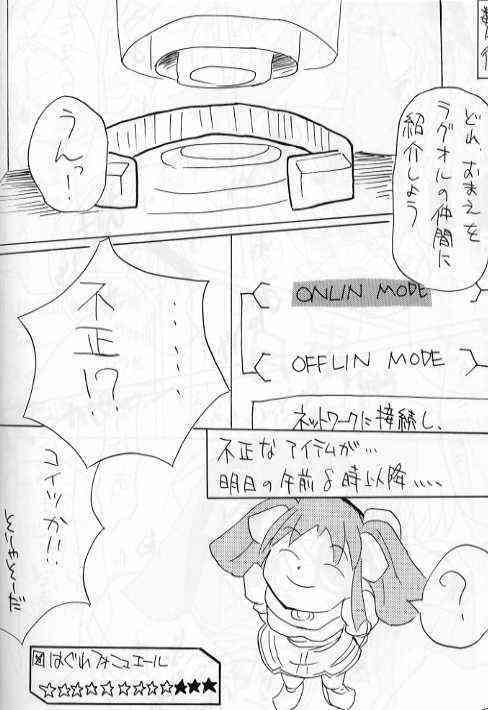 どれ、おまえを
ラグオルの仲間に
紹介しよう
うんっ!
ONLIN MODE
OFFLIN MODE
ネットワークに接続し、
……
不正!?
不正なアイテムが…
明日の午前8時以降……
?
コイツか!!
はぐれフォニュエール
☆☆☆☆☆☆☆☆☆★★★